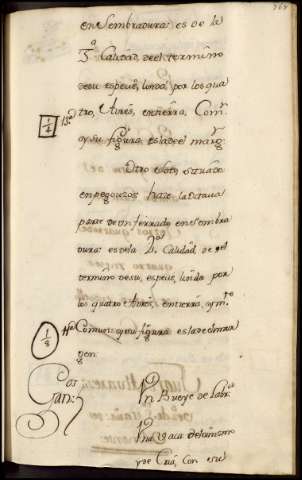 en Sembradura: es de la
3ª Calidad, de el termino
de su especie, linda por los qua
tro, Aires, en tierra, Comn.
y su figura es la de el marg.n
1/4
Otro Soto, situado
en pegouzos, haze la Octava
parte de un ferrado en Sembra
dura: es de la 2ª Calidad de el
termino de su especie, linda por
los quatro Aires, en tierras, y mte
Comun, y su figura es la de el mar
gen
1/8
Gan:
Un Bueye de Labr.a
Una Vaca de el mismo
y de Cria, Con su